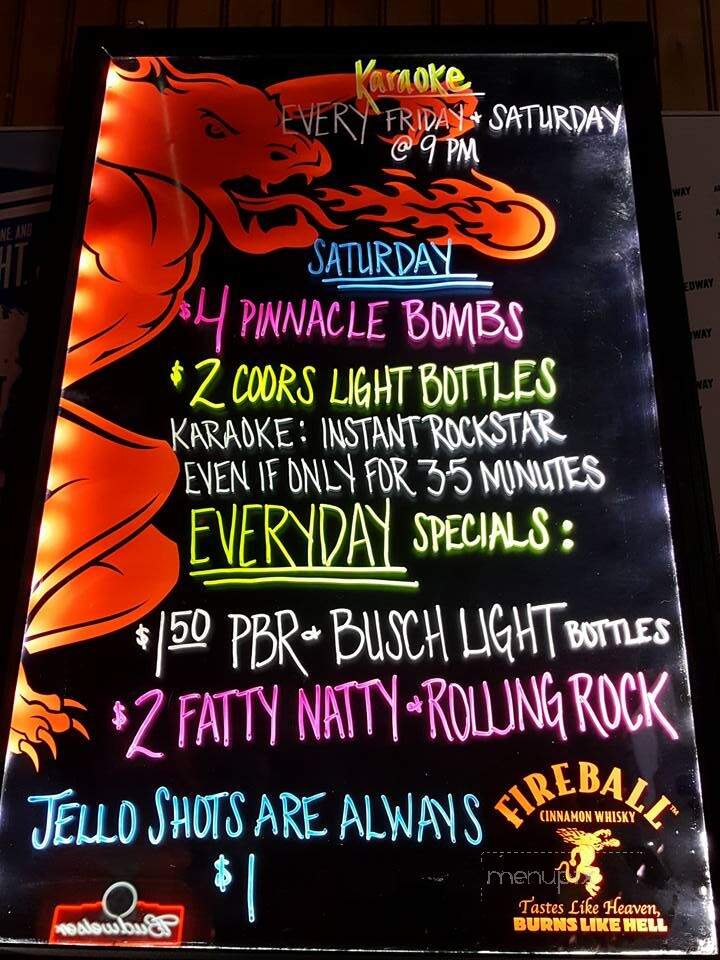 Karaoke
EVERY FRIDAY + SATURDAY
@ 9 PM
SATURDAY
$4 PINNACLE BOMBS
$2 COORS LIGHT BOTTLES
KARAOKE: INSTANT ROCKSTAR
EVEN IF ONLY FOR 3-5 MINUTES
EVERYDAY SPECIALS:
$1 50 PBR + BUSCH LIGHT BOTTLES
$2 FATTY NATTY + ROLLING ROCK
JELLO SHOTS ARE ALWAYS
$1
FIREBALL™
CINNAMON WHISKY
Tastes Like Heaven,
BURNS LIKE HELL
Budweiser